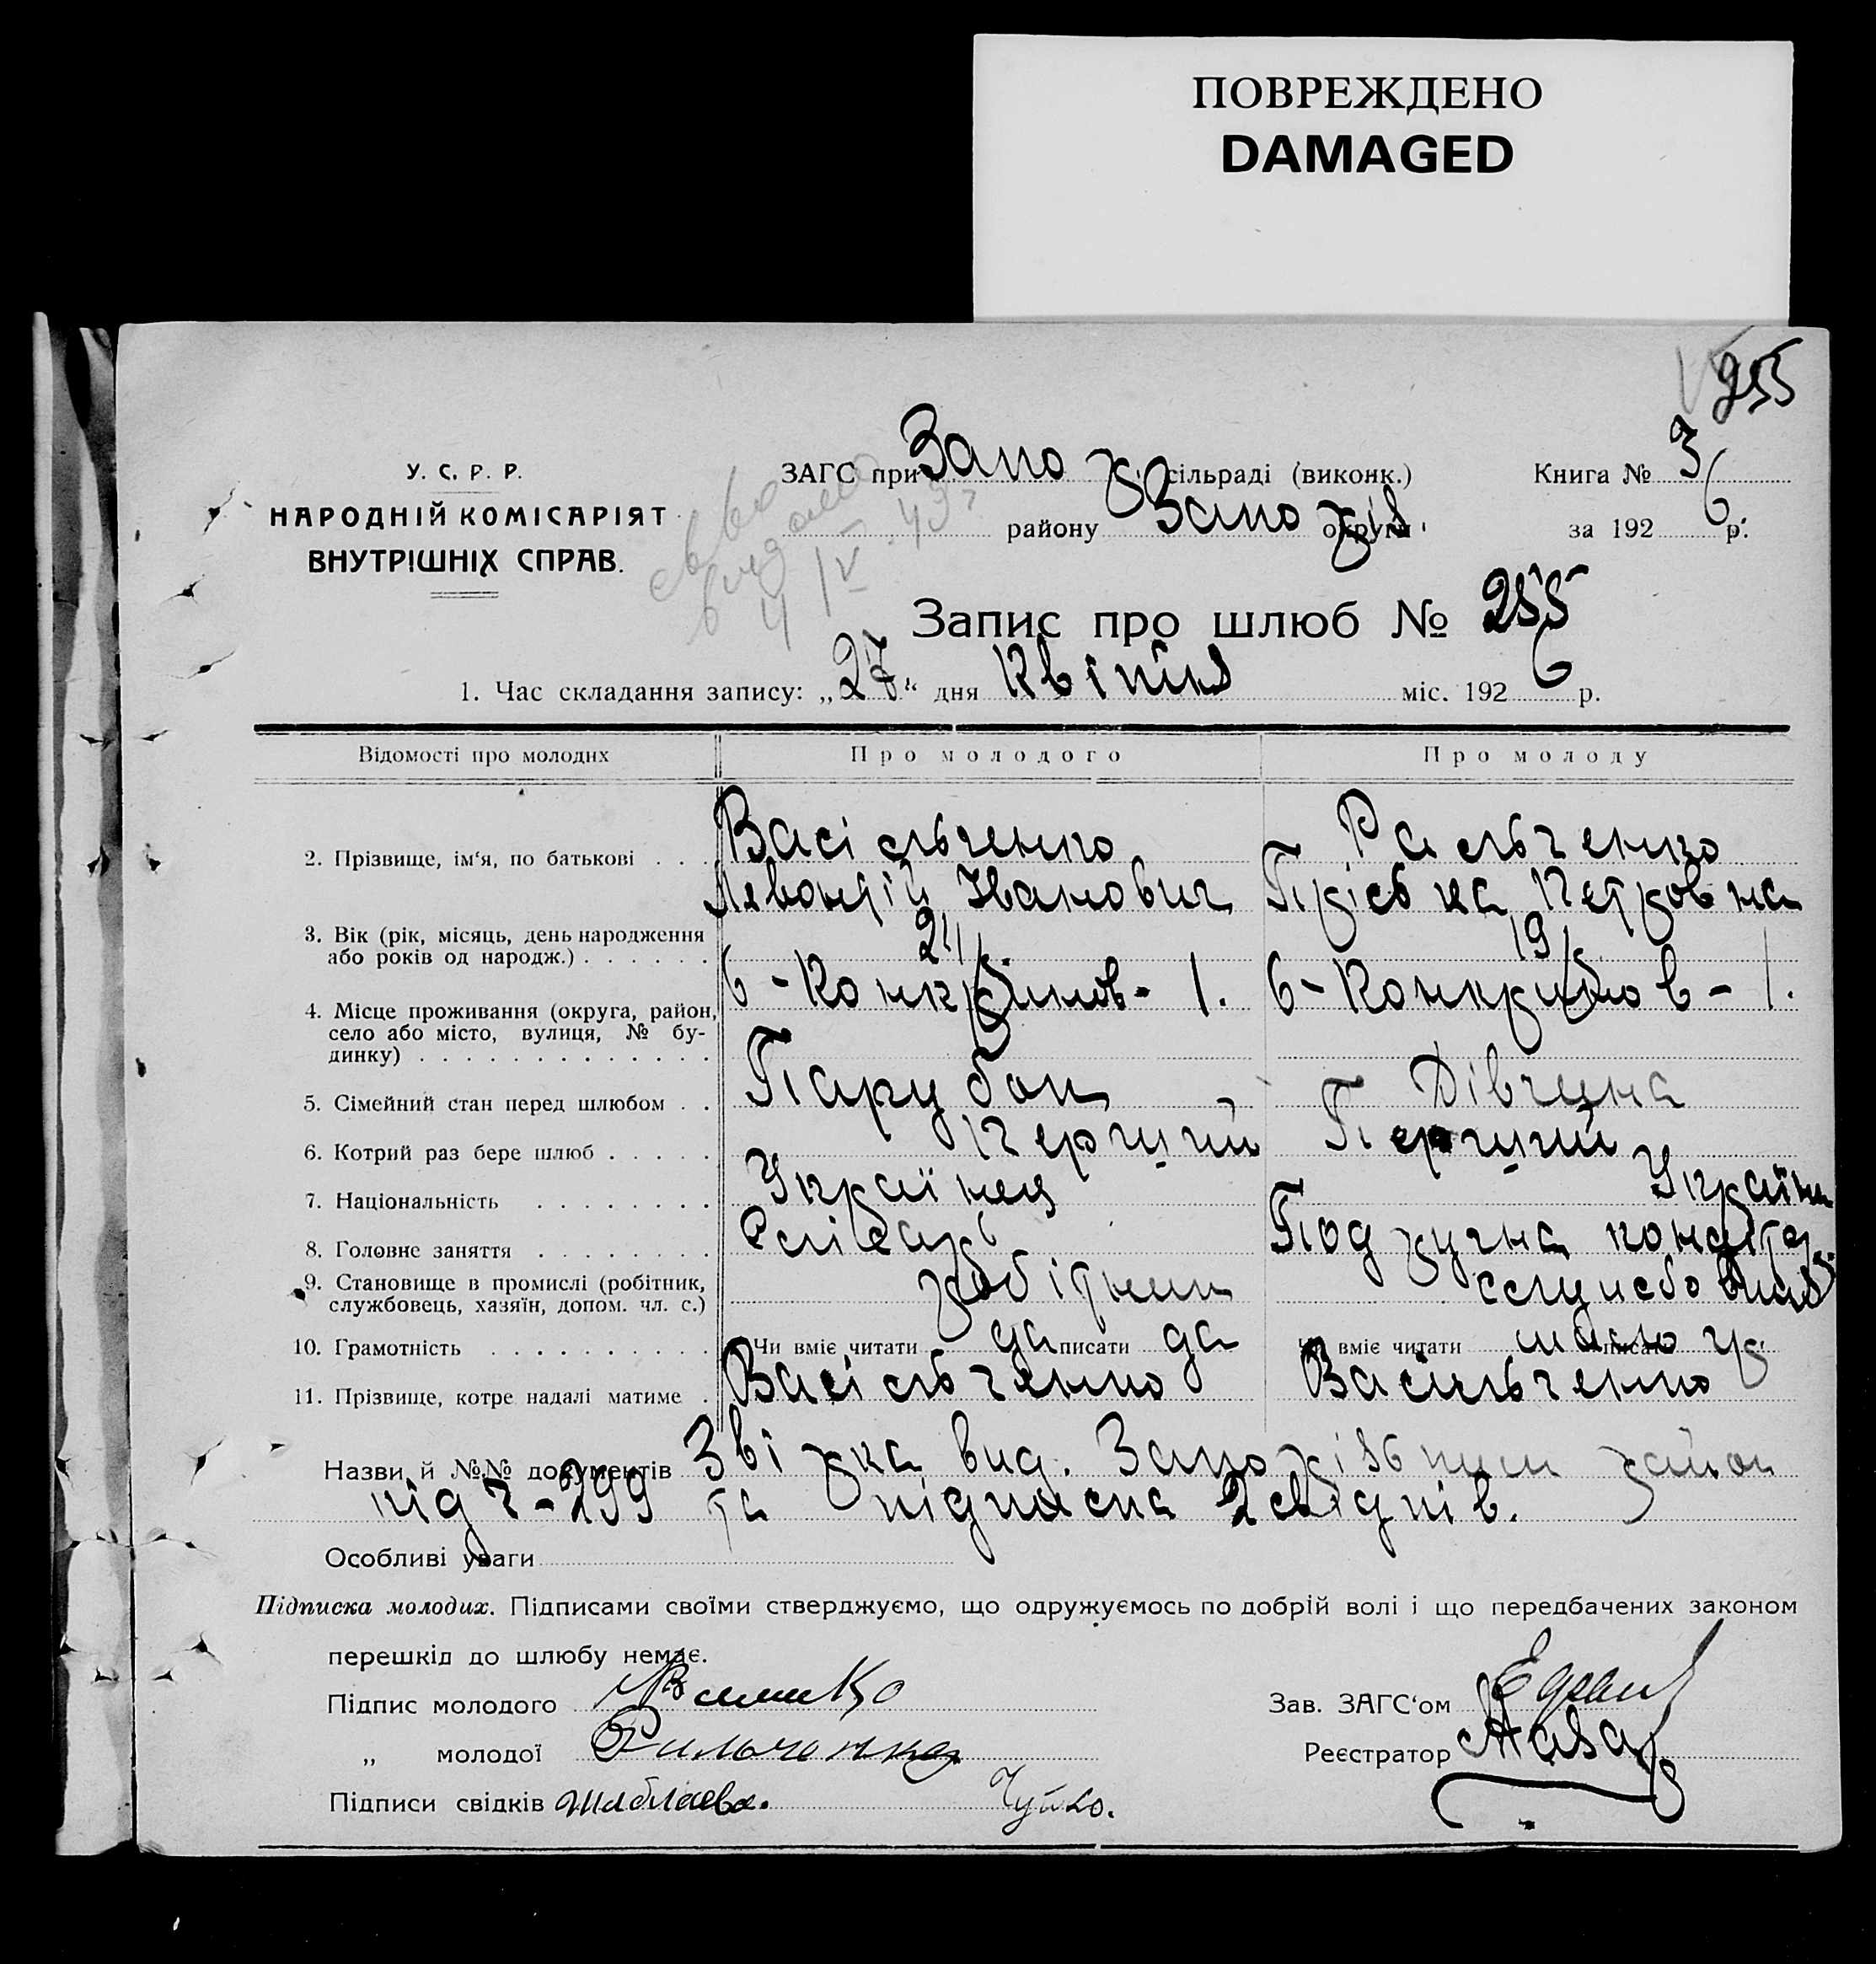 ПОВРЕЖДЕНО
DAMAGED
255
У. С. Р. Р.
НАРОДНІЙ КОМІСАРІЯТ
ВНУТРІШНІХ СПРАВ.
ЗАГС при Запор. сільраді (виконк.) Книга № 3
району Запоріз. округи за 1926 р.
4 IV 49 г
Запис про шлюб № 255
1. Час складання запису: „27“ дня Квітня міс. 1926 р.
Відомості про молодих Про молодого Про молоду
2. Прізвище, ім'я, по батькові Васільченко Ральченко
Левонтій Іванович Пріська Петровна
3. Вік (рік, місяць, день народження 19
або років од народж.)
4. Місце проживання (округа, район,
село або місто, вулиця, № бу-
динку)
5. Сімейний стан перед шлюбом Парубок Дівчина
6. Котрий раз бере шлюб Перший Перший
7. Національність Українец Україн
8. Головне заняття Слісарь
9. Становище в промислі (робітник, робітник
службовець, хазяїн, допом. чл. с.)
10. Грамотність Чи вміє читати да писати да Чи вміє читати писати
11. Прізвище, котре надалі матиме Васільченко Васильченко
Назви й №№ документів Звірка вид. Запорізьким район
під ч-299 та підписка 2 свідків.
Особливі уваги
Підписка молодих. Підписами своїми стверджуємо, що одружуємось по добрій волі і що передбачених законом
перешкід до шлюбу немає.
Підпис молодого Зав. ЗАГС'ом
„ молодої Рильченко Реєстратор
Підписи свідків Шаблаева. Чуйко.